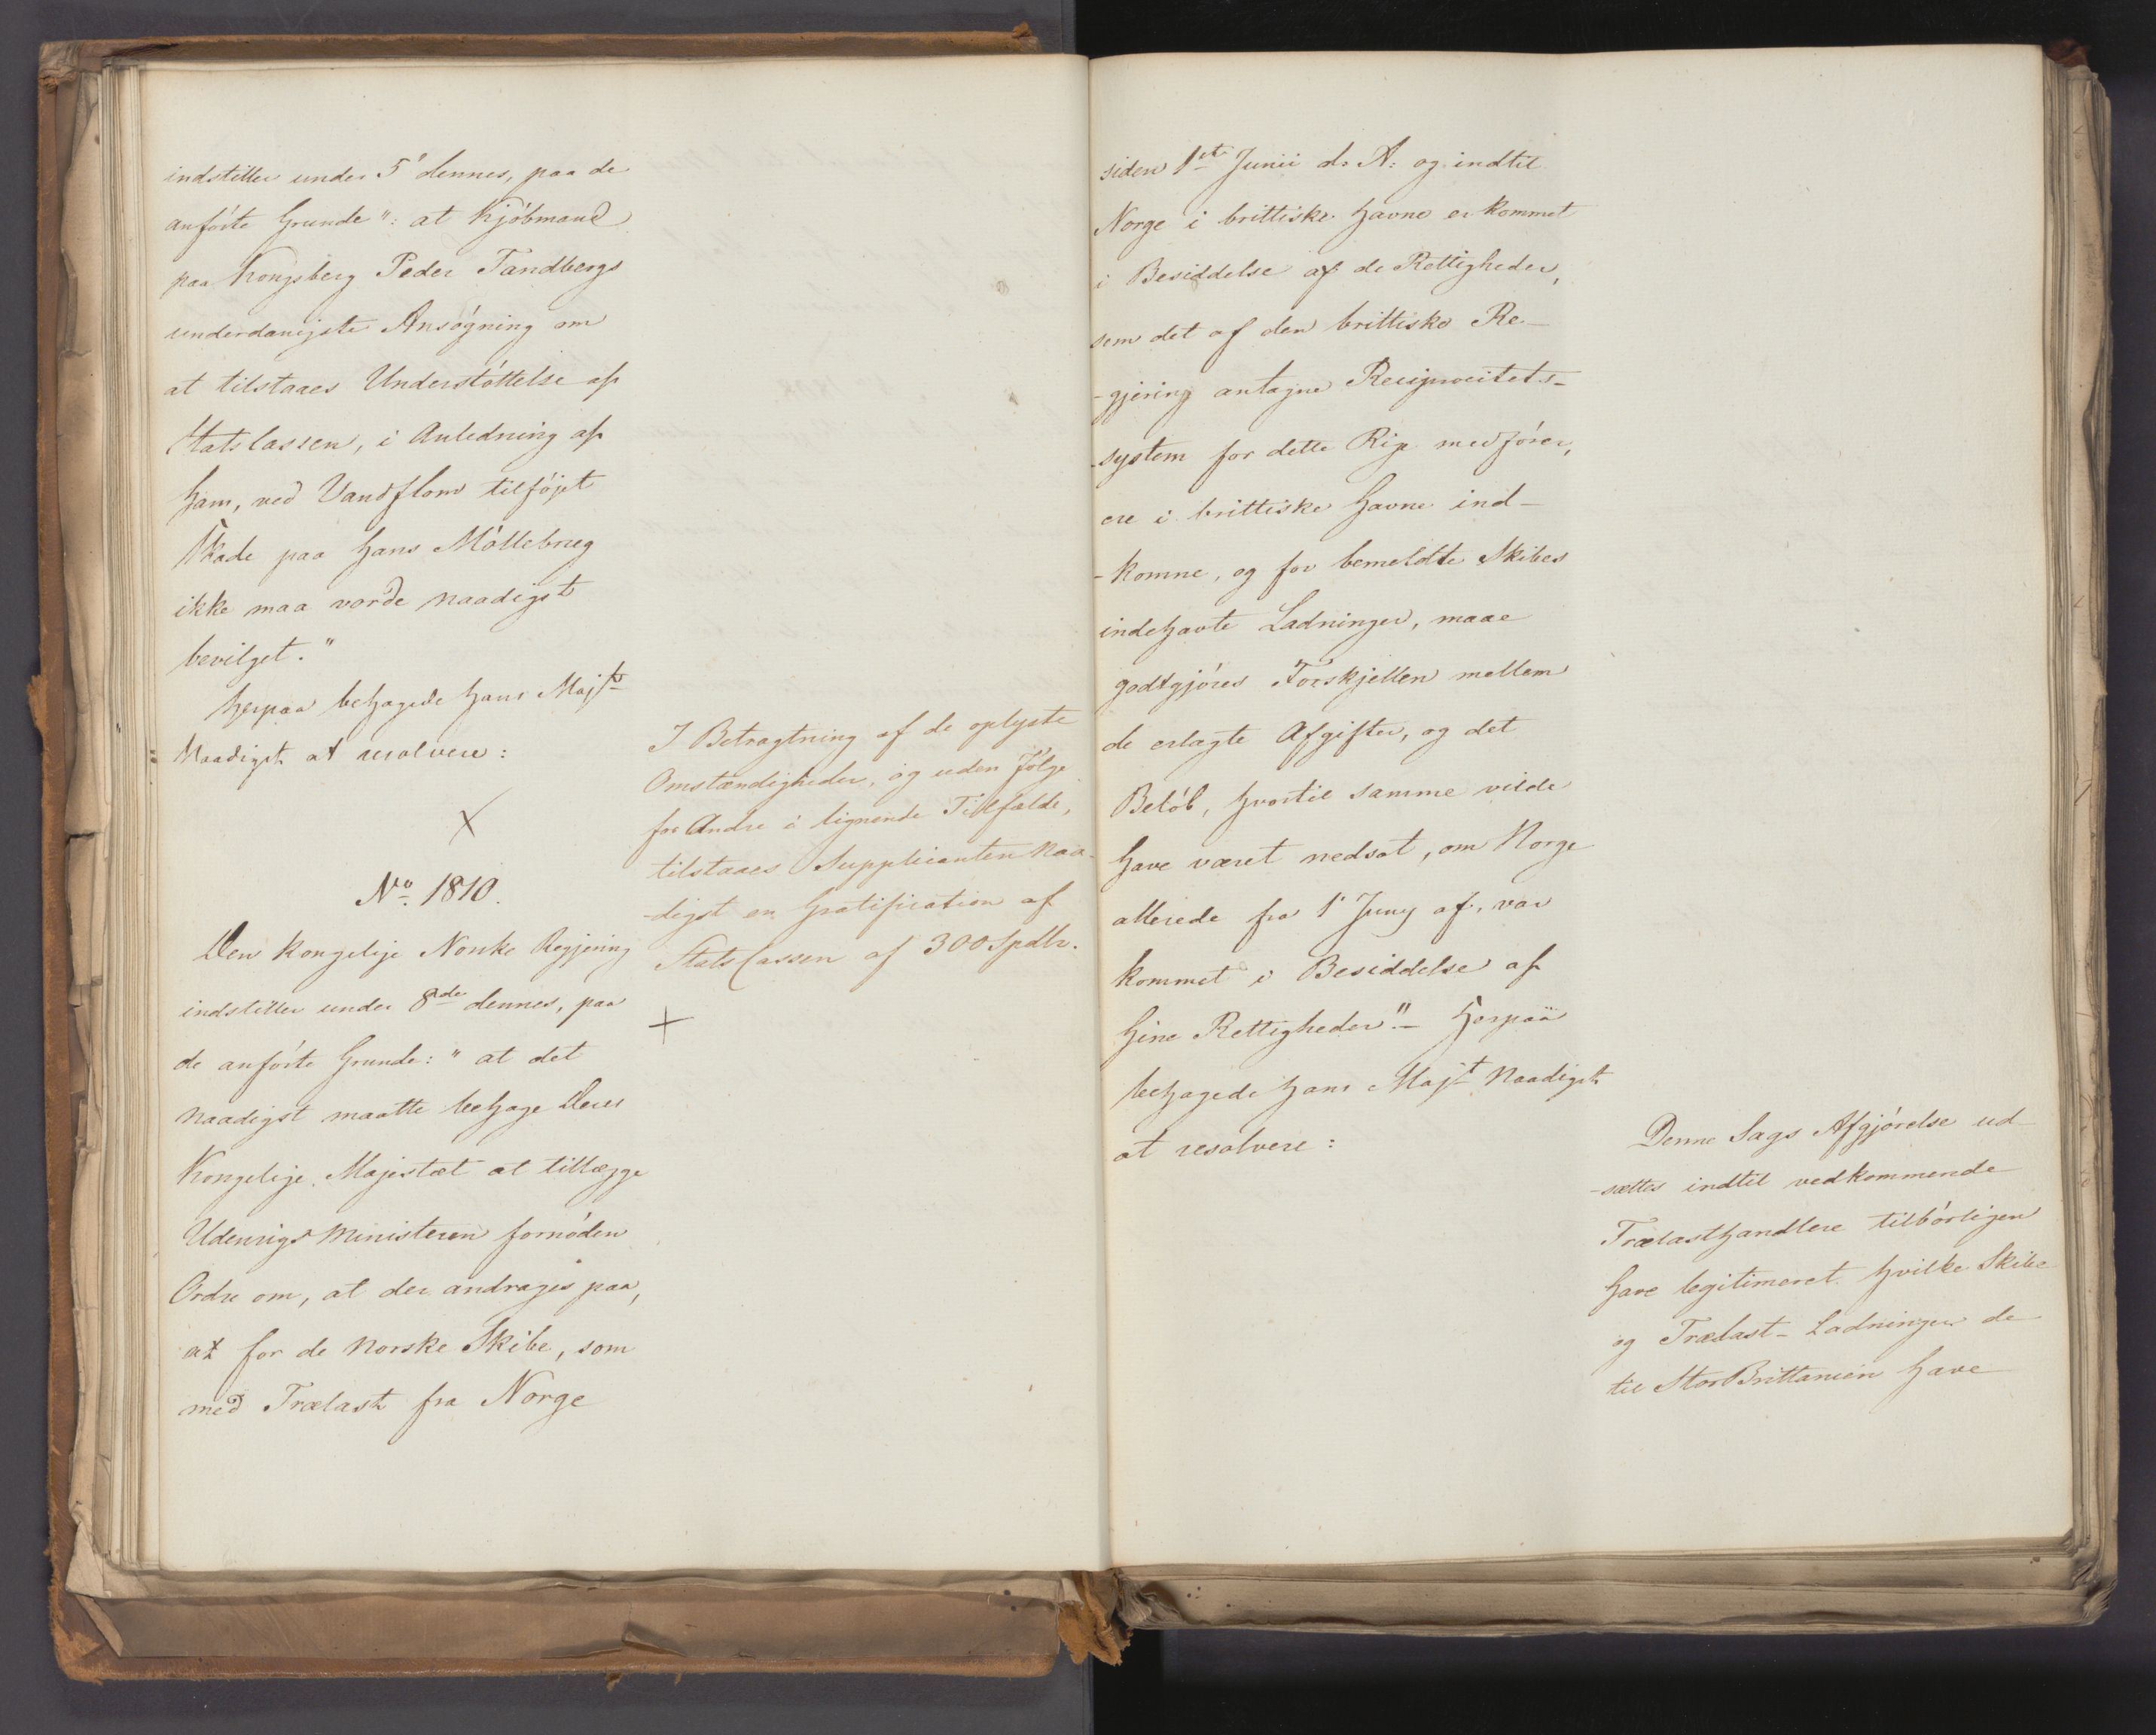 indstiller under 5' dennes, paa de
anförte Grunde": at Kjöbmand
paa Kongsberg Peder Tandbergs
underdanigste Ansögning om
at tilstaaes Understöttelse af
Statscassen, i Anledning af
ham, ved Vandflom tilföjet
Skade paa hans Möllebrug
ikke maa vorde naadigst
bevilget."
Herpaa behagede Hans Majt
Naadigst at resolvere:
X
No. 1810.
Den Kongelige Norske Regjering
indstiller under 8de dennes, paa
de anförte Grunde: "at det
naadigst maatte behage Deres
Kongelige Majestæt at tillægge
Udenrigs Ministeren fornöden
Ordre om, at der andrages paa,
at for de norske Skibe, som
med Trælast fra Norge
I Betragtning af de oplyste
Omstændigheder, og uden Fölge
for Andre i lignende Tilfælde,
tilstaaes Supplicanten Naa-
-digst en Gratification af
Stats Cassen af 300 Spdlr.
X
siden 1ste Junii d. A: og indtil
Norge i brittiske Havne er kommet
i Besiddelse af de Rettigheder,
som det af den brittiske Re-
-gjering antagne Reciprocitets-
-system for dette Rige medförer,
ere i brittiske Havne ind-
-komne, og for bemeldte Skibes
indehavte Ladninger, maae
godtgjöres Forskjellen mellem
de erlagte Afgifter, og det
Belöb, hvortil samme vilde
have været nedsat, om Norge
allerede fra 1' Juny af, var
kommet i Besiddelse af
hine Rettigheder"- Herpaa
behagede Hans Majt Naadigst
at resolvere:
Denne Sags Afgjörelse ud-
-sættes indtil vedkommende
Trælasthandlere tilbörligen
have legitimeret hvilke Skibe
og Trælast-Ladninger de
til StorBrittanien have